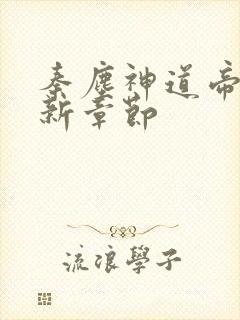 秦塵神道帝
新章節
流浪學子